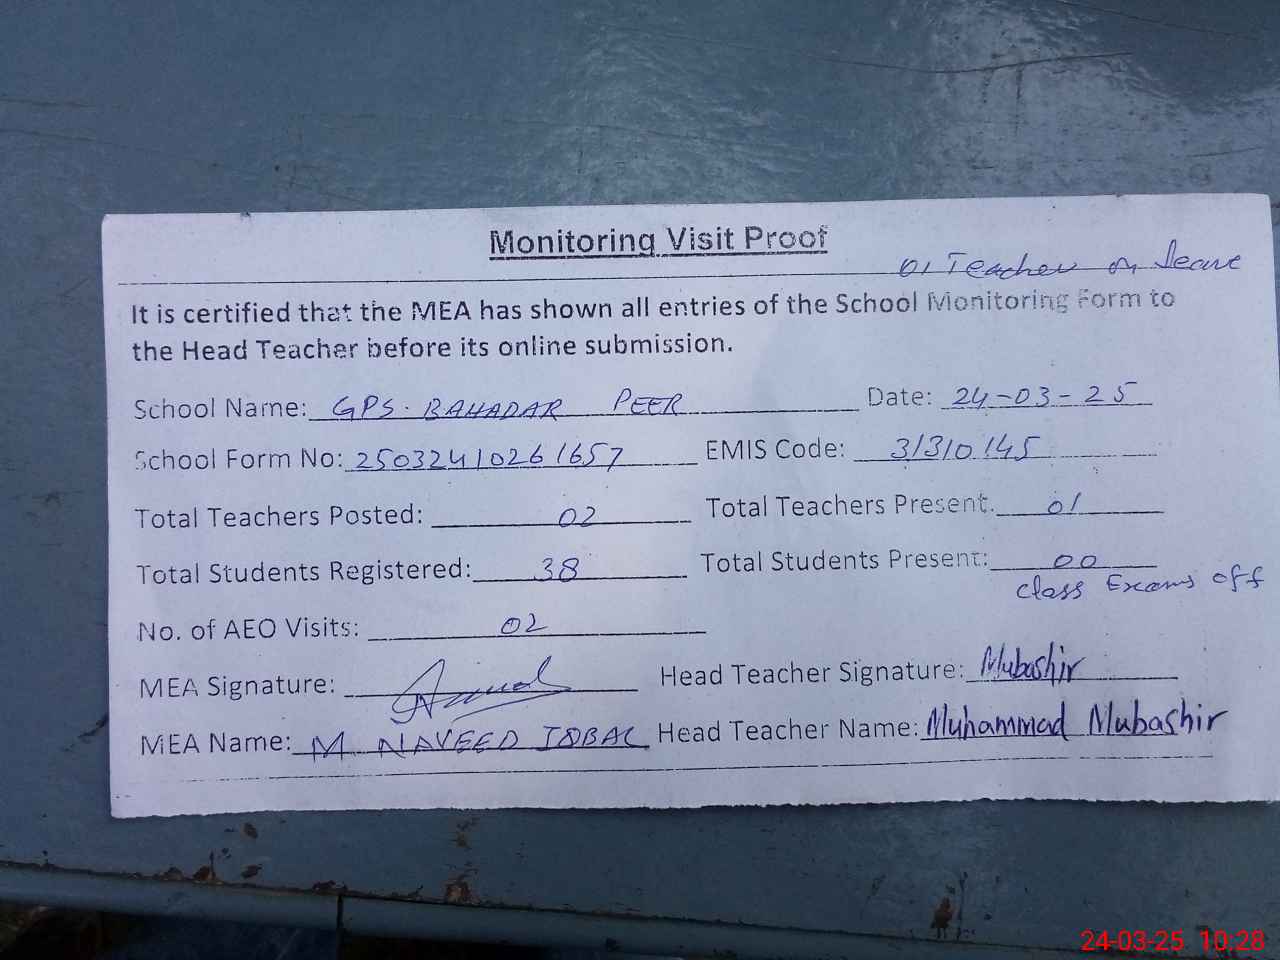 Monitoring Visit Proof
01 Teacher on leave
It is certified that the MEA has shown all entries of the School Monitoring Form to
the Head Teacher before its online submission.
School Name: GPS. BAHADAR PEER Date: 24-03-25
School Form No: 25032410261657 EMIS Code: 31310145
Total Teachers Posted: 02 Total Teachers Present. 01
Total Students Registered: 38 Total Students Present: 00
class Exams off
No. of AEO Visits: 02
MEA Signature: Head Teacher Signature: Mubashir
MEA Name: M NAVEED IQBAL Head Teacher Name: Muhammad Mubashir
24-03-25 10:28